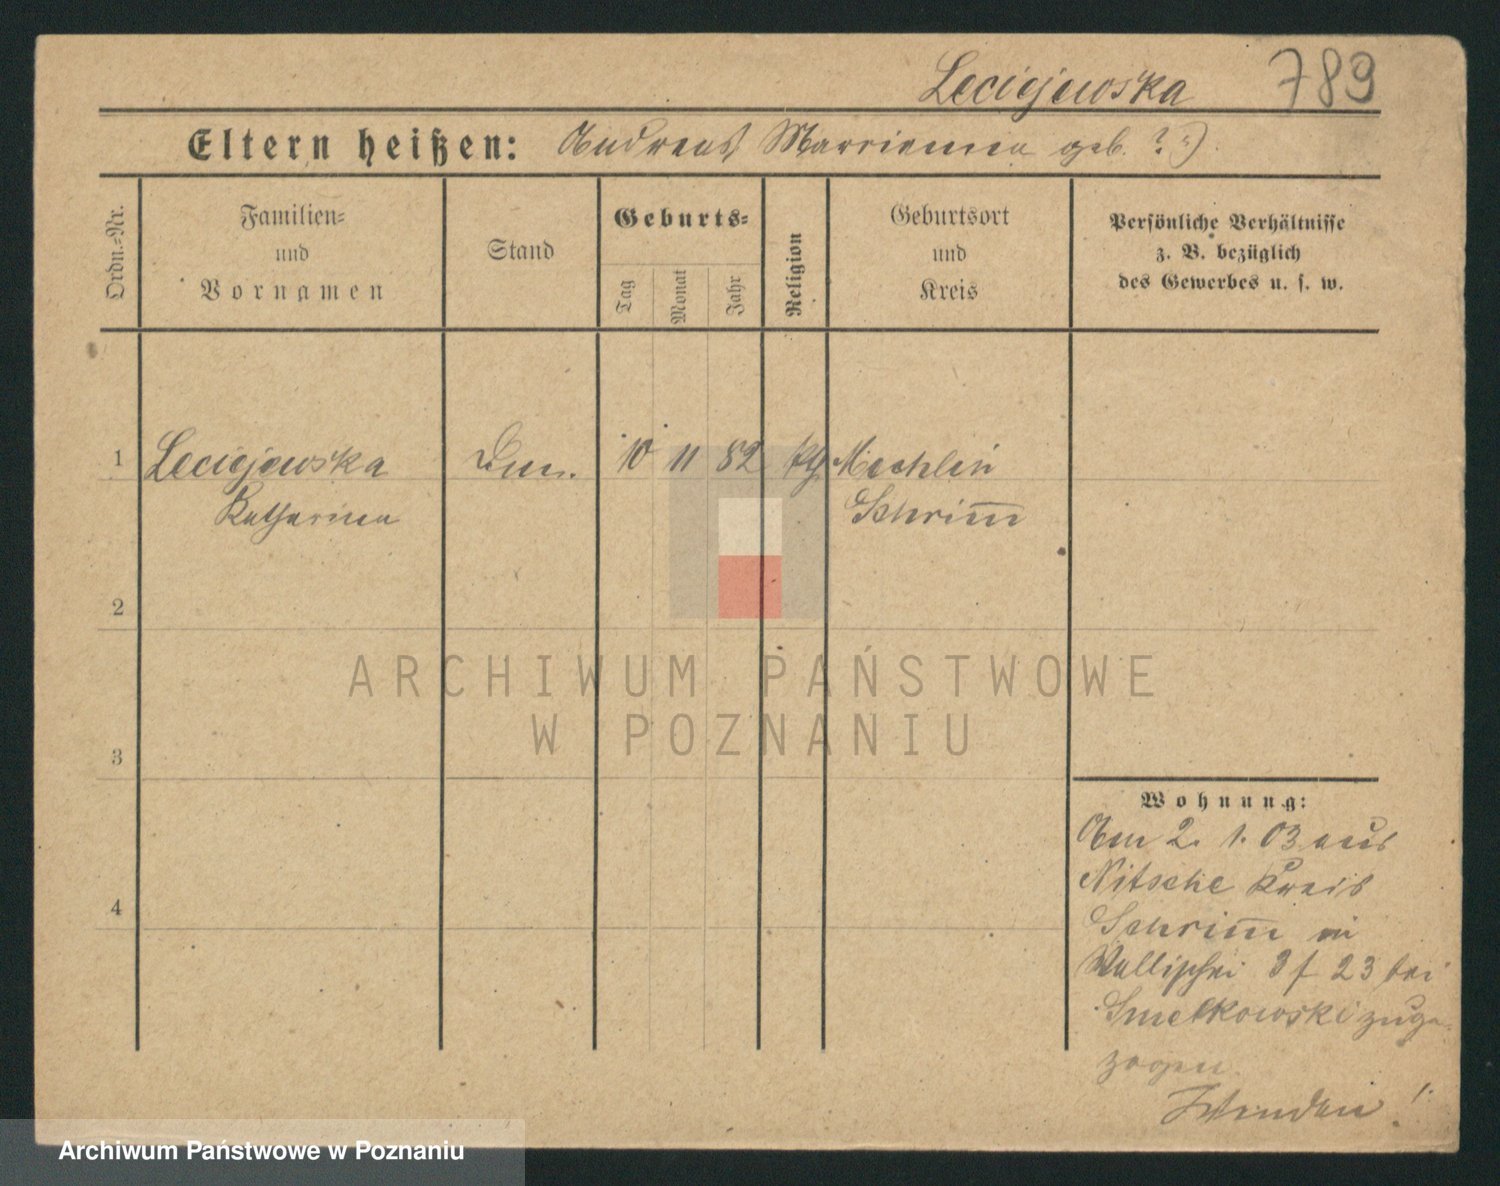 Leciejewska 789
Eltern heißen: Andreas Marrianna geb. ? :)
Ordn.=Nr.
Familien=
und
Vornamen
Stand
Geburts=
Tag
Monat
Jahr
Religion
Geburtsort
und
Kreis
Persönliche Verhältnisse
z. B. bezüglich
des Gewerbes u. s. w.
1 Leciejewska 10 11 82 Mechlin
Katharina Schrim̅
2
3
4
ARCHIWUM PAŃSTWOWE
W POZNANIU
Wohnung:
Am 2. 1. 03 aus
Nitsche Kreis
Schrim̅ in
Wallischei 3 f 23 bei
Smelkowski zuge-
zogen
Archiwum Państwowe w Poznaniu